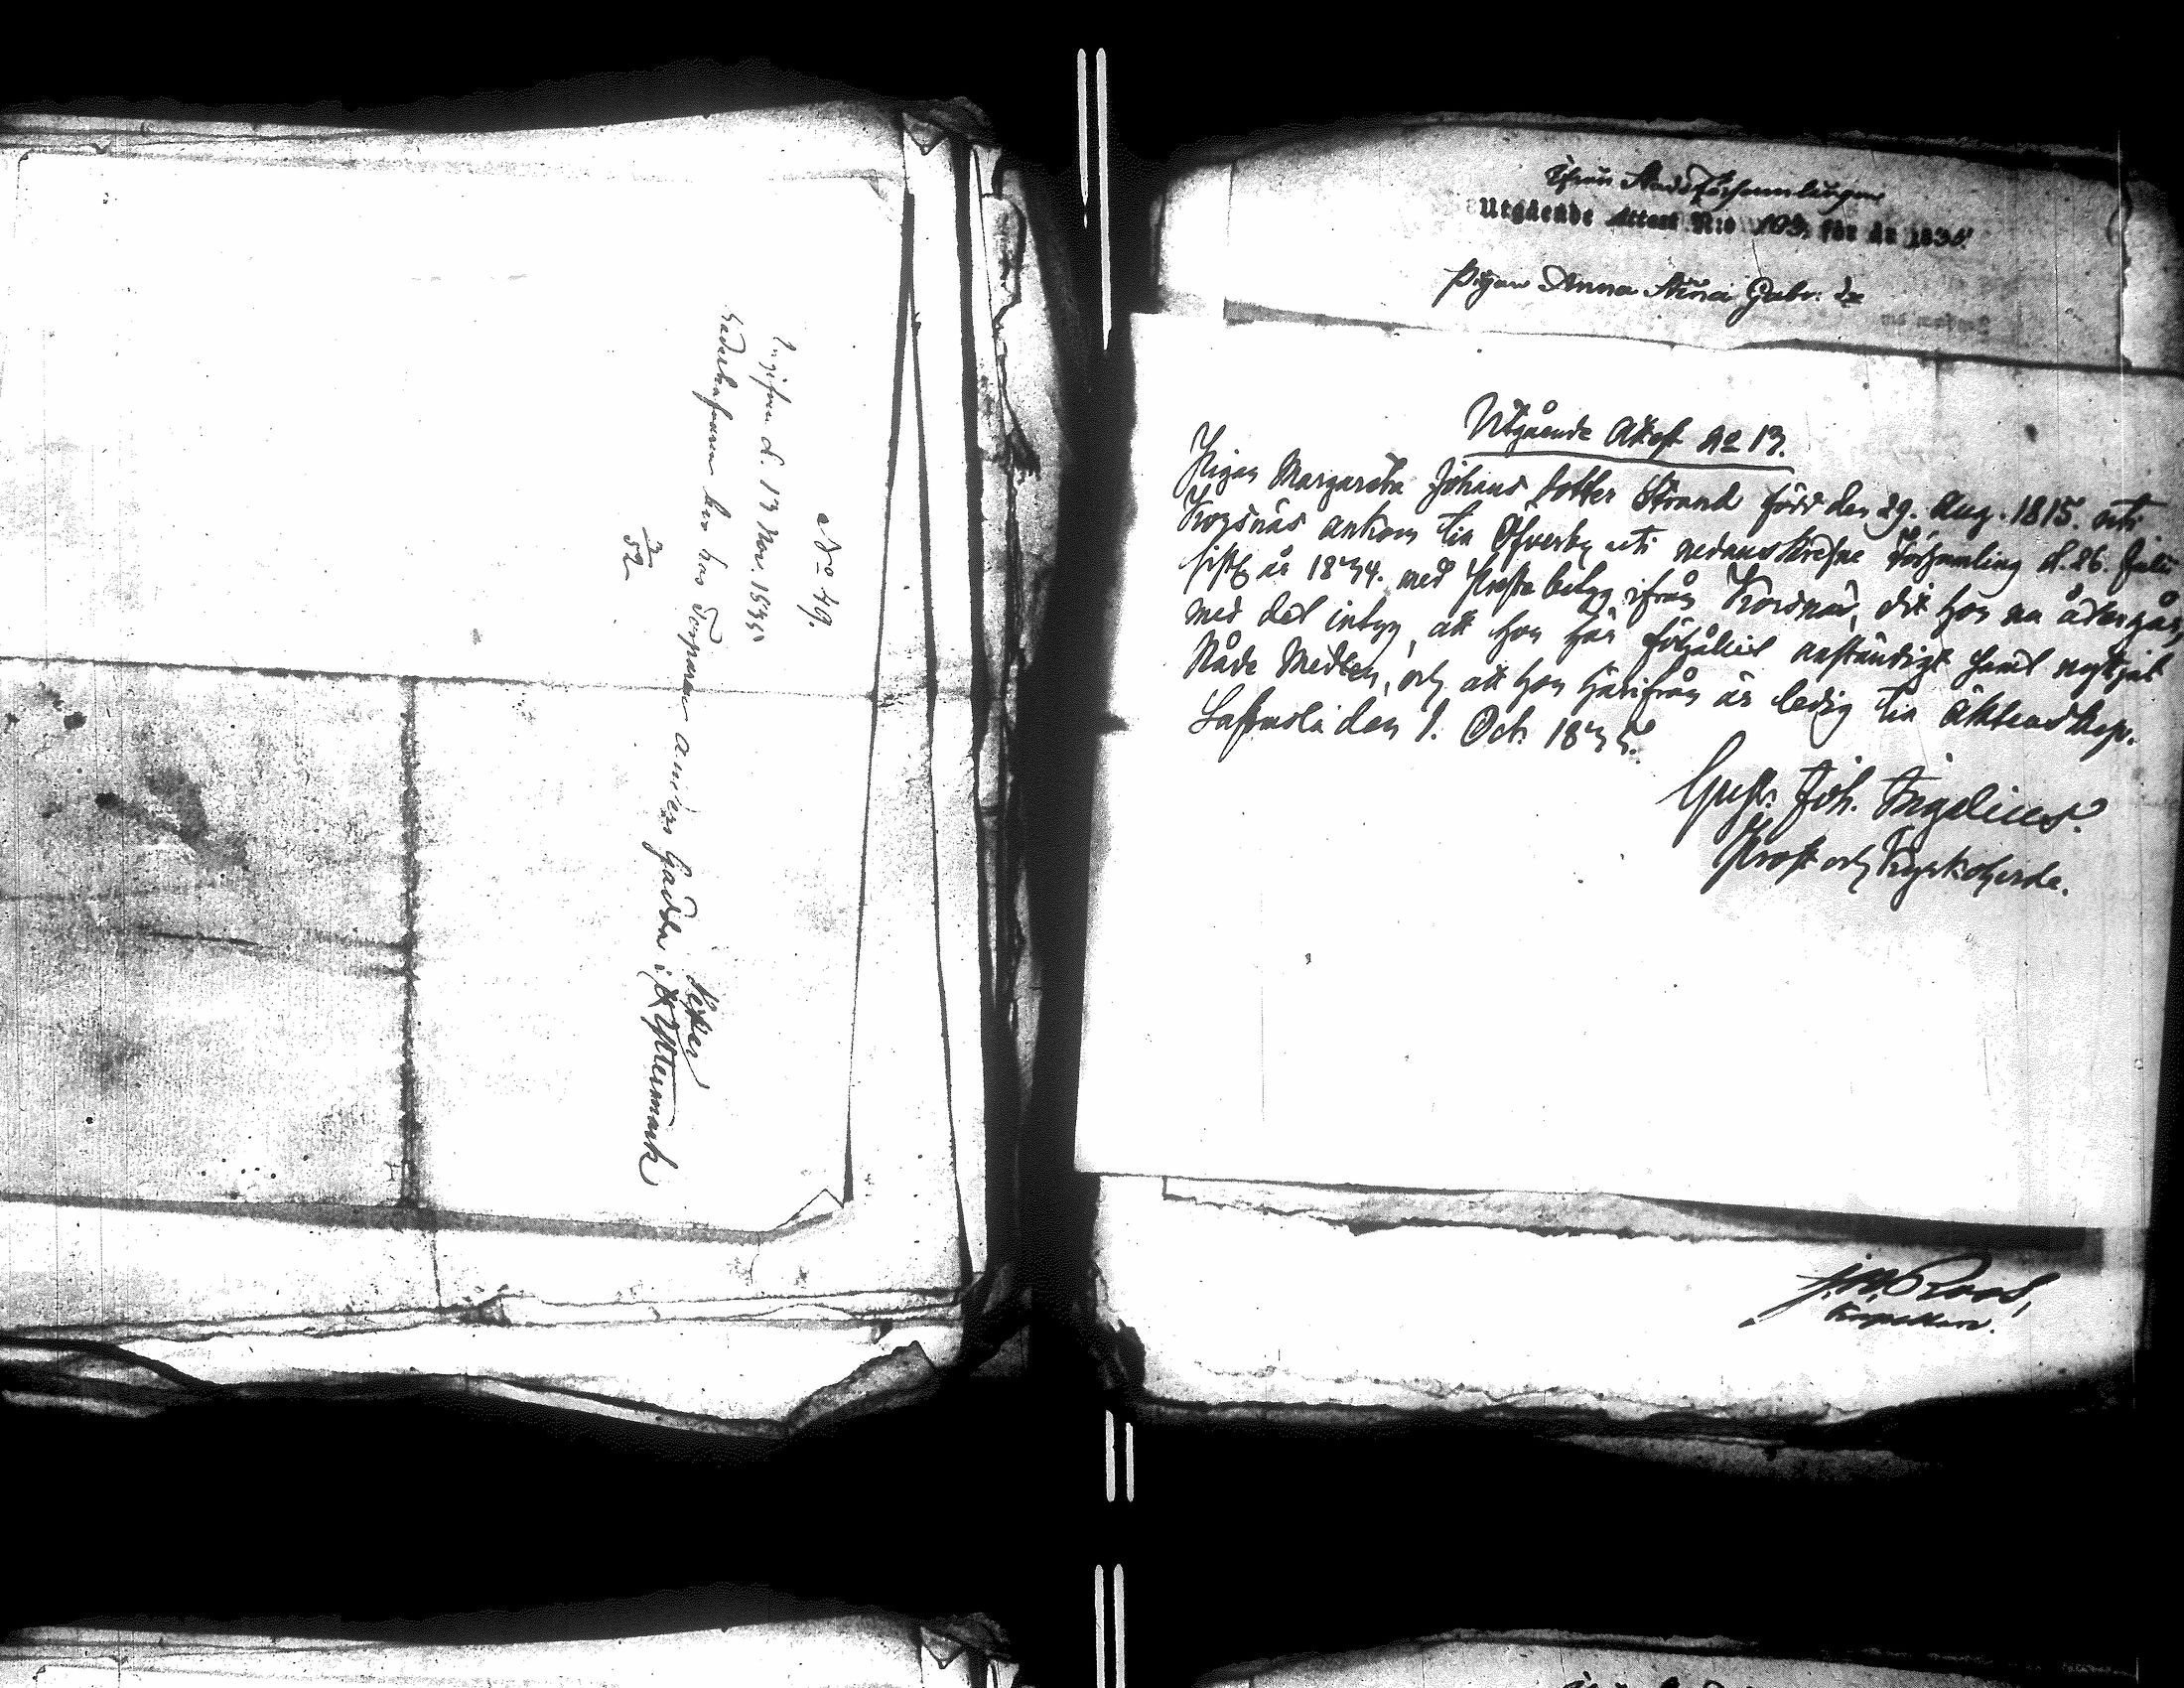 No 49.
Ingifven d. 13 Nov. 1835.
hos Torparen Anders Gadda i
Yttermark
3/52
Från Stadsförsamlingen
Utgående Attest N:o 103. för år 1835
Pigan Anna Stina Gabr: dr
Utgående Attest No 13.
Pigan Margareta Johans dotter Strand född den 29. Aug. 1815. uti
Korsnäs ankom till Öfverby uti nedanskrefne Församling d. 26. Julii
sistl. år 1834. med Prestebetyg ifrån Korsnäs, dit hon nu återgår,
med det intyg, att hon här förhållit anständigt samt nyttjat
Nåde Medlen, och att hon härifrån är ledig till Äktenskap.
Lappfjerd den 1. Oct. 1835.
Gust. Joh. Ingelius.
Prost och Kyrkoherde.
J. M. Roos,
Kapellan.